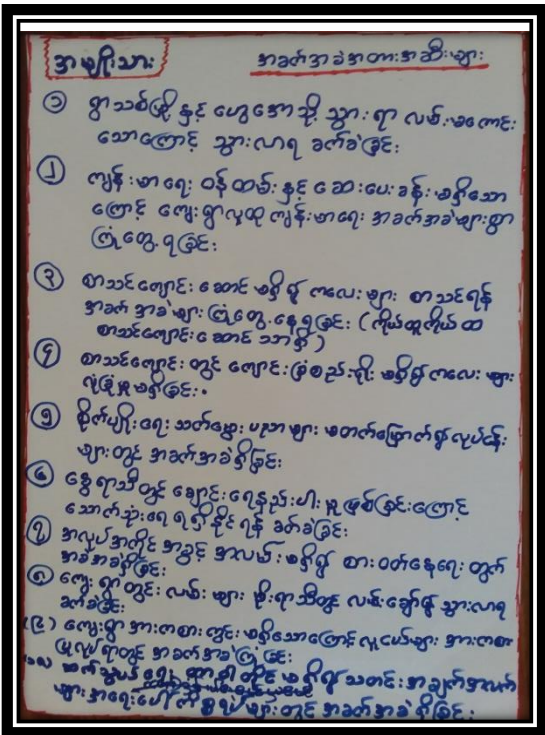 အမျိုးသား အခက်အခဲအတားအဆီးများ
၁ ရွာသစ်မြို့နှင့် ဟွေအောသို့ သွားရာ လမ်းမကောင်း
သောကြောင့် သွားလာရ ခက်ခဲခြင်း
၂ ကျန်းမာရေး ဝန်ထမ်းနှင့် ဆေးပေးခန်းမရှိသော
ကြောင့် ကျေးရွာလူထုကျန်းမာရေး အခက်အခဲများစွာ
ကြုံတွေ့ရခြင်း
၃ စာသင်ကျောင်းဆောင်မရှိ၍ ကလေးများ စာသင်ရန်
အခက်အခဲများကြုံတွေ့နေရခြင်း (ကိုယ်ထူကိုယ်ထ
စာသင်ကျောင်းဆောင်သာရှိ)
၄ စာသင်ကျောင်းတွင် ကျောင်းခြံစည်းရိုးမရှိ၍ ကလေးများ
လုံခြုံမှုမရှိခြင်း။
၅ စိုက်ပျိုးရေး သတ်မွေးပညာများ မတက်မြောက်၍ လုပ်ငန်း
များတွင် အခက်အခဲရှိခြင်း
၆ နွေရာသီတွင် ချောင်းရေနည်းပါးမှုဖြစ်ခြင်းကြောင့်
သောက်သုံးရေရရှိနိုင်ရန် ခတ်ခဲခြင်း
၇ အလုပ်အကိုင်အခွင့်အလမ်းမရှိ၍ စားဝတ်နေရေးတွက်
အခဲအခဲရှိခြင်း
၈ ကျေးရွာတွင်းလမ်းများ မိုးရာသီတွင် လမ်းချော်၍ သွားလာရ
ခက်ခဲခြင်း
(၉) ကျေးရွာအားကစားကွင်းမရှိသောကြောင့် လူငယ်များ အားကစား
ပြုလုပ်ရာတွင် အခက်အခဲကြုံခြင်း
၁၀ ဆက်သွယ်ရေးတာဝါတိုင်မရှိ၍ သတင်းအချက်အလက်
များအရေးပေါ်ကိစ္စရပ်များတွင် အခတ်အခဲရှိခြင်း